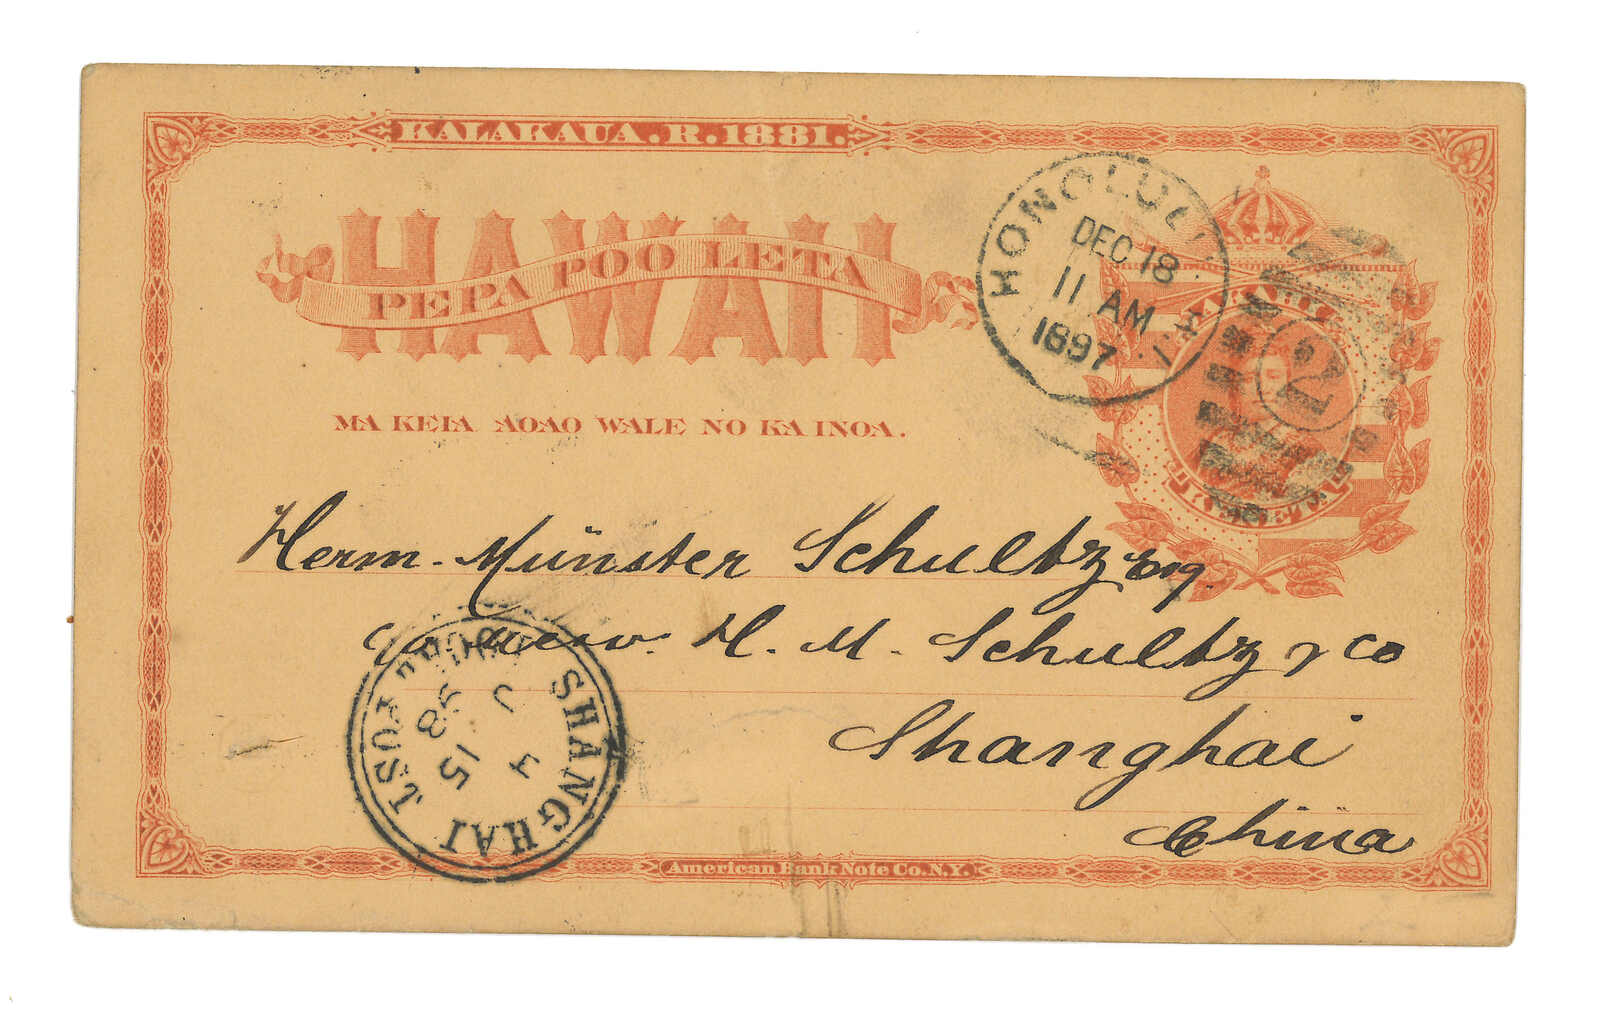 KALAKAUA. R. 1881.
HAWAII
PEPA POO LETA
MA KEIA AOAO WALE NO KA INOA.
HONOLULU
DEC 18
11 AM
1897
2
Herm. Münster Schultz Esq.
H. M. Schultz & Co
Shanghai
China
SHANGHAI
LOCAL POST
J
4
15
98
American Bank Note Co. N.Y.